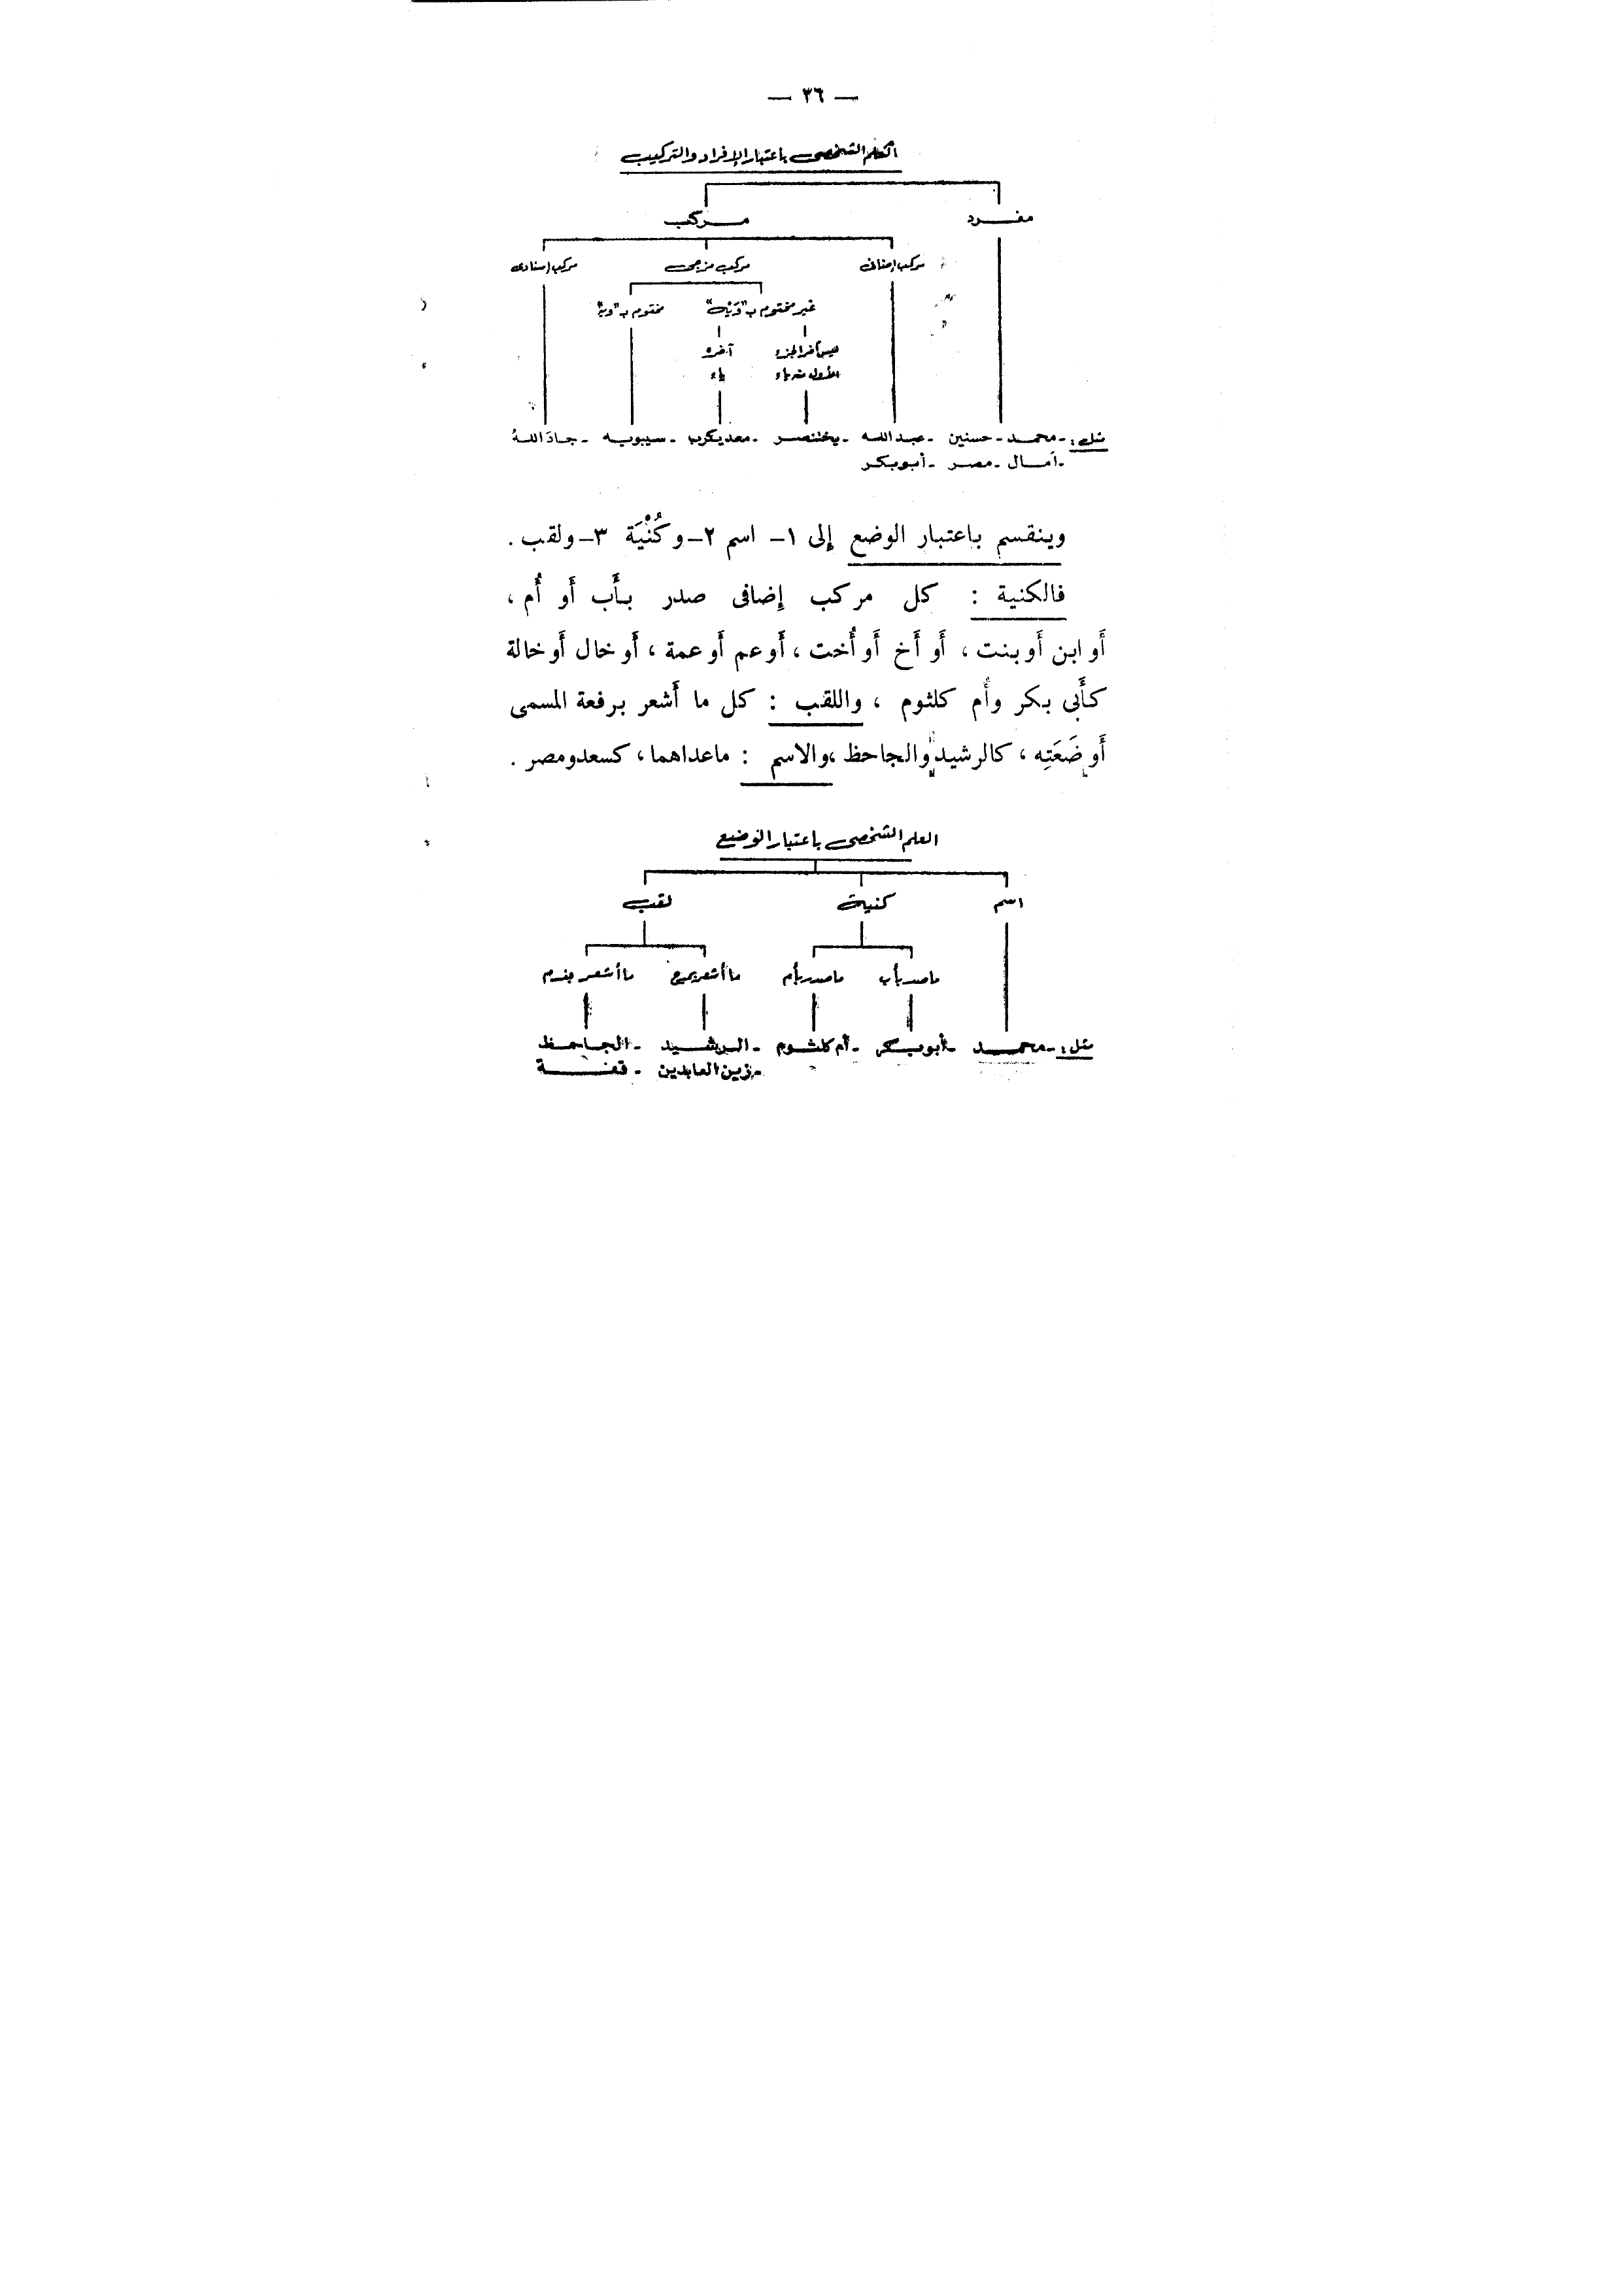 — ٣٦ —
العلم الشخصى باعتبار الإفراد والتركيب
مفرد مركب
مركب إضافى مركب مزجى مركب إسنادى
غير مختوم ب "وَيْه" مختوم ب "ويه"
ليس آخر الجزء آخره
الأول منه ياء ياء
مثل: ـ محمد ـ حسنين ـ عبد الله ـ بختنصر ـ معديكرب ـ سيبويه ـ جادَ اللهُ
ـ آمال ـ مصر ـ أبو بكر
وينقسم باعتبار الوضع إلى ١ـ اسم ٢ـ وكُنْيَة ٣ـ ولقب .
فالكنية : كل مركب إضافى صدر بأَب أَو أُم ،
أَو ابن أَو بنت ، أَو أَخ أَو أُخت ، أَو عم أَو عمة ، أَو خال أَو خالة
كأَبى بكر وأُم كلثوم ، واللقب : كل ما أَشعر برفعة المسمى
أَو ضَعَتِه ، كالرشيد والجاحظ ، والاسم : ماعداهما ، كسعد ومصر .
العلم الشخصى باعتبار الوضع
اسم كنية لقب
ما صدر بأب ما صدر بأم ما أشعر بمدح ما أشعر بذم
مثل: ـ محمد ـ أبو بكر ـ أم كلثوم ـ الرشيد ـ الجاحظ
ـ زين العابدين ـ قفة